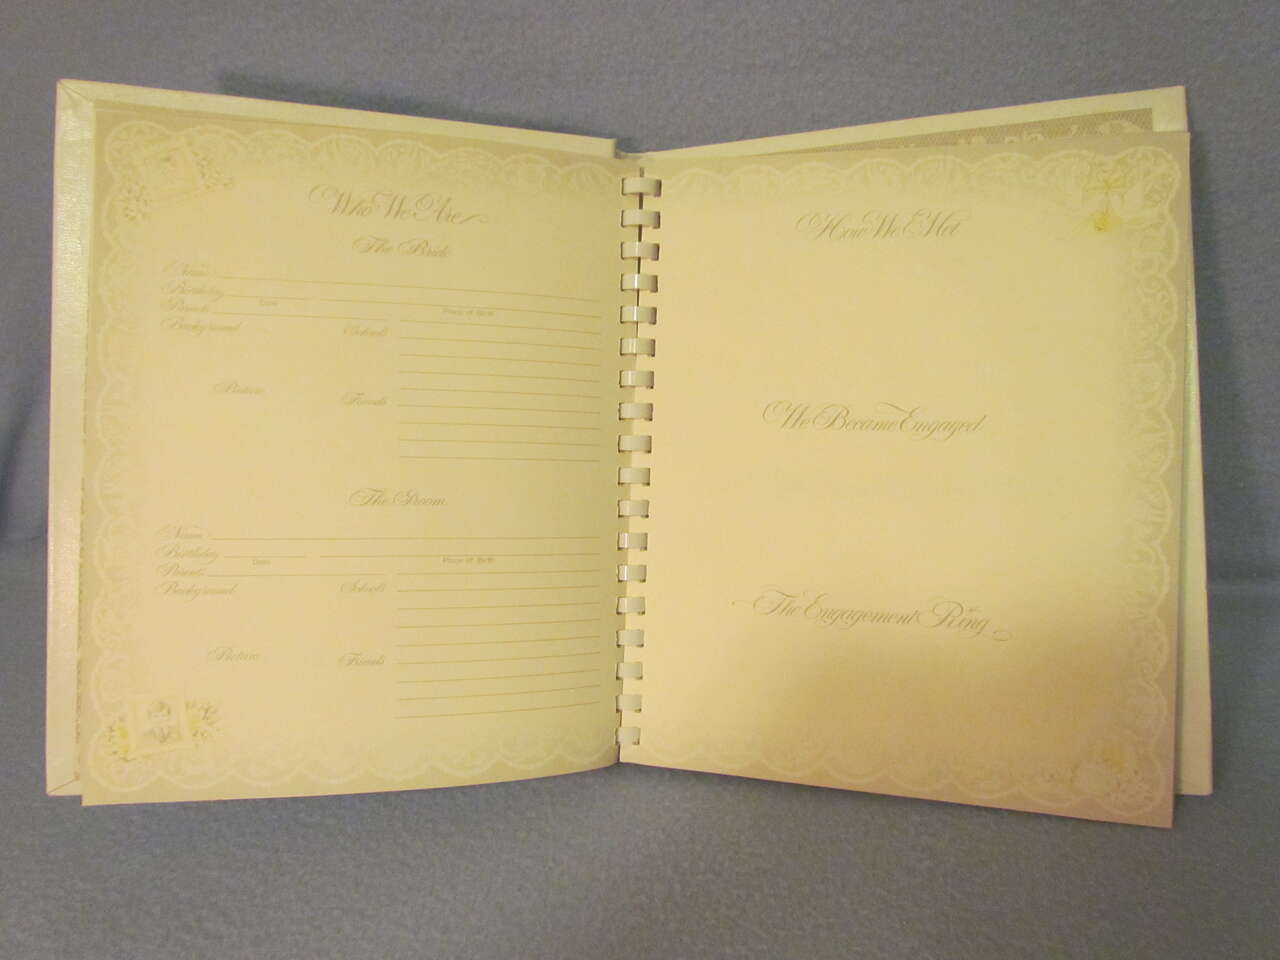 Who We Are
The Bride
Name
Birthday
Date Place of Birth
Parents
Background Schools
Picture Friends
The Groom
Name
Birthday
Date Place of Birth
Parents
Background Schools
Picture Friends
How We Met
We Became Engaged
The Engagement Ring